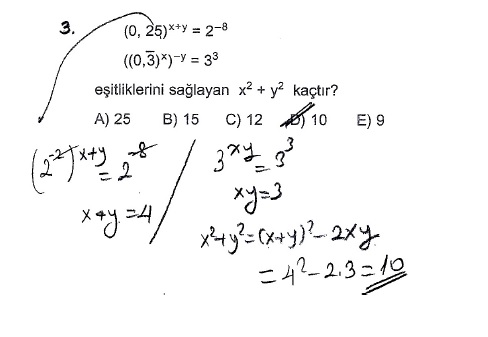 3.
(0, 25)ˣ⁺ʸ = 2⁻⁸
((0,3̅)ˣ)⁻ʸ = 3³
eşitliklerini sağlayan x² + y² kaçtır?
A) 25 B) 15 C) 12 D) 10 E) 9
(2⁻²)ˣ⁺ʸ = 2⁻⁸
x+y=4
3ˣʸ = 3³
xy=3
x²+y²=(x+y)²-2xy
=4²-2.3=10